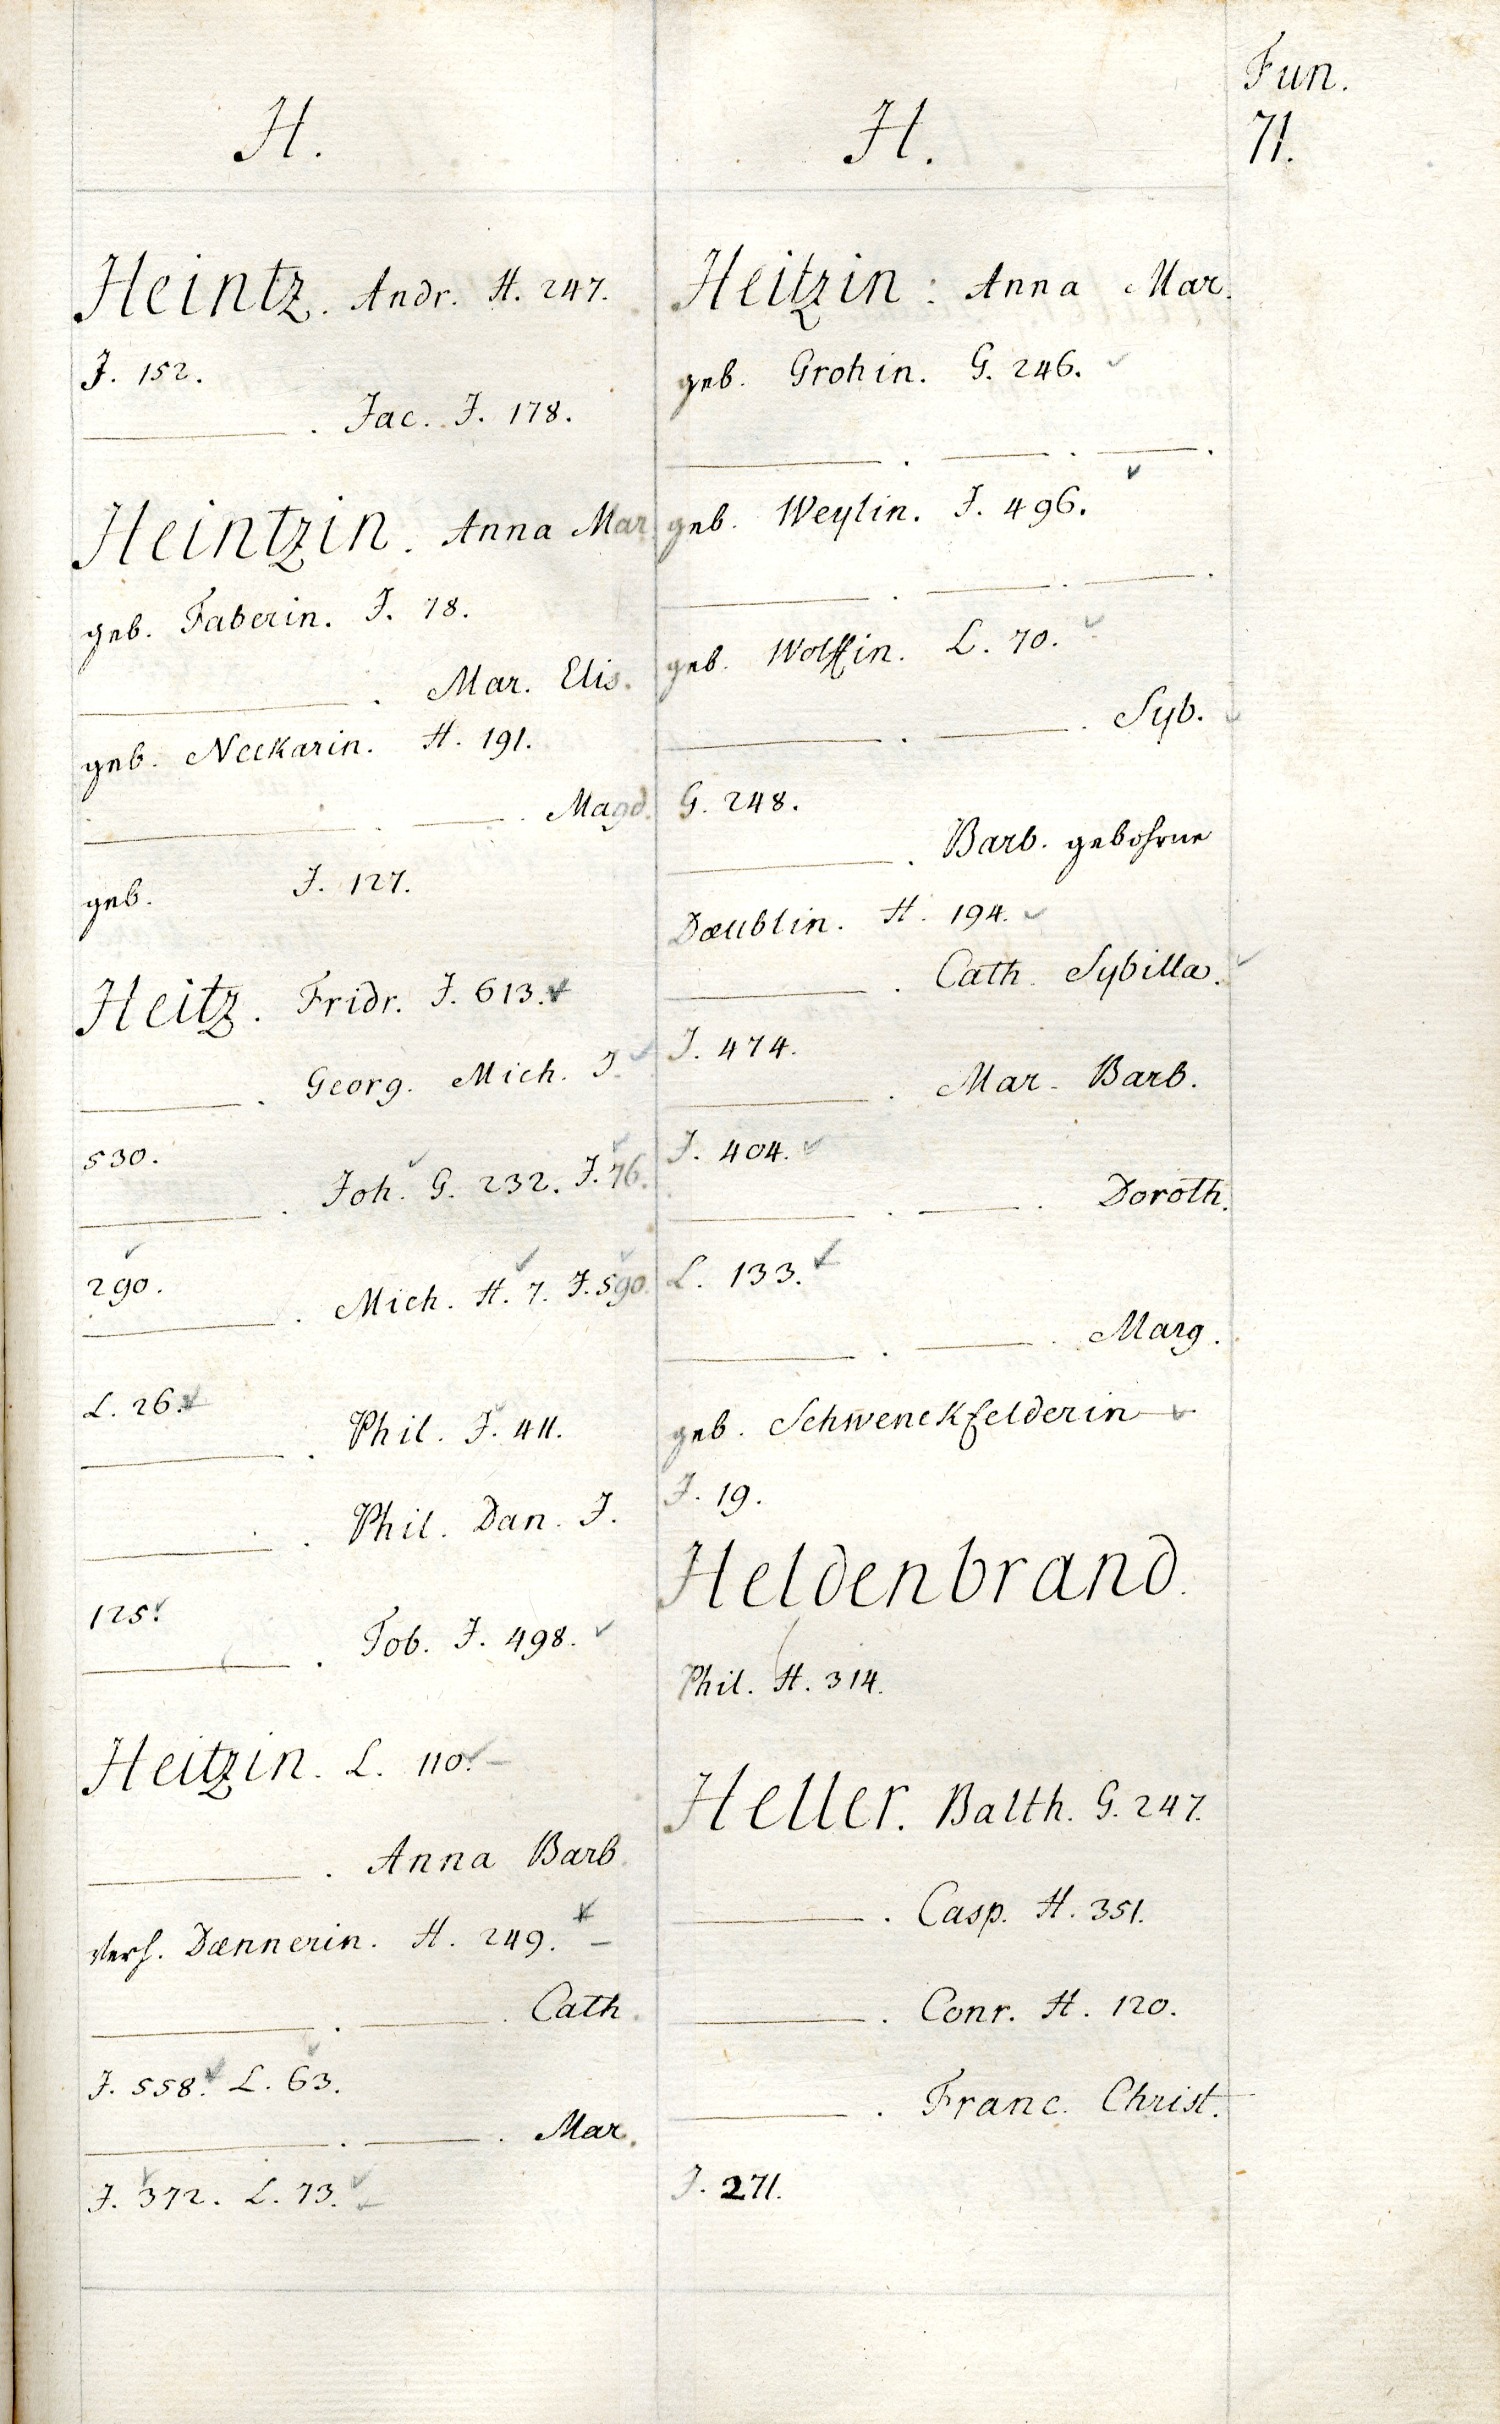 Fun.
71.
H.
Heintz. Andr. H. 247.
J. 152.
———. Jac. J. 178.
Heintzin. Anna Mar
geb. Faberin. J. 78.
———. Mar. Elis.
geb. Neckarin. H. 191.
———. ———. Magd.
geb. J. 127.
Heitz. Fridr. J. 613.
———. Georg. Mich. J.
530.
———. Joh. G. 232. J. 76.
290.
———. Mich. H. 7. J. 590.
L. 26.
———. Phil. J. 411.
———. Phil. Dan. J.
125.
———. Tob. J. 498.
Heitzin. L. 110.
———. Anna Barb.
verh. Dænnerin. H. 249.
———. ———. Cath.
J. 558. L. 63.
———. ———. Mar.
J. 372. L. 73.
H.
Heitzin: Anna Mar.
geb. Grohin. G. 246.
———. ———. ———.
geb. Weylin. J. 496.
———. ———. ———.
geb. Wolffin. L. 70.
———. ———. Syb.
G. 248.
———. Barb. gebohrne
Dæublin. H. 194.
———. Cath. Sybilla.
J. 474.
———. Mar. Barb.
J. 404.
———. ———. Doroth.
L. 133.
———. ———. Marg.
geb. Schwenckfelderin
J. 19.
Heldenbrand.
Phil. H. 314.
Heller. Balth. G. 247.
———. Casp. H. 351.
———. Conr. H. 120.
———. Franc. Christ.
J. 271.